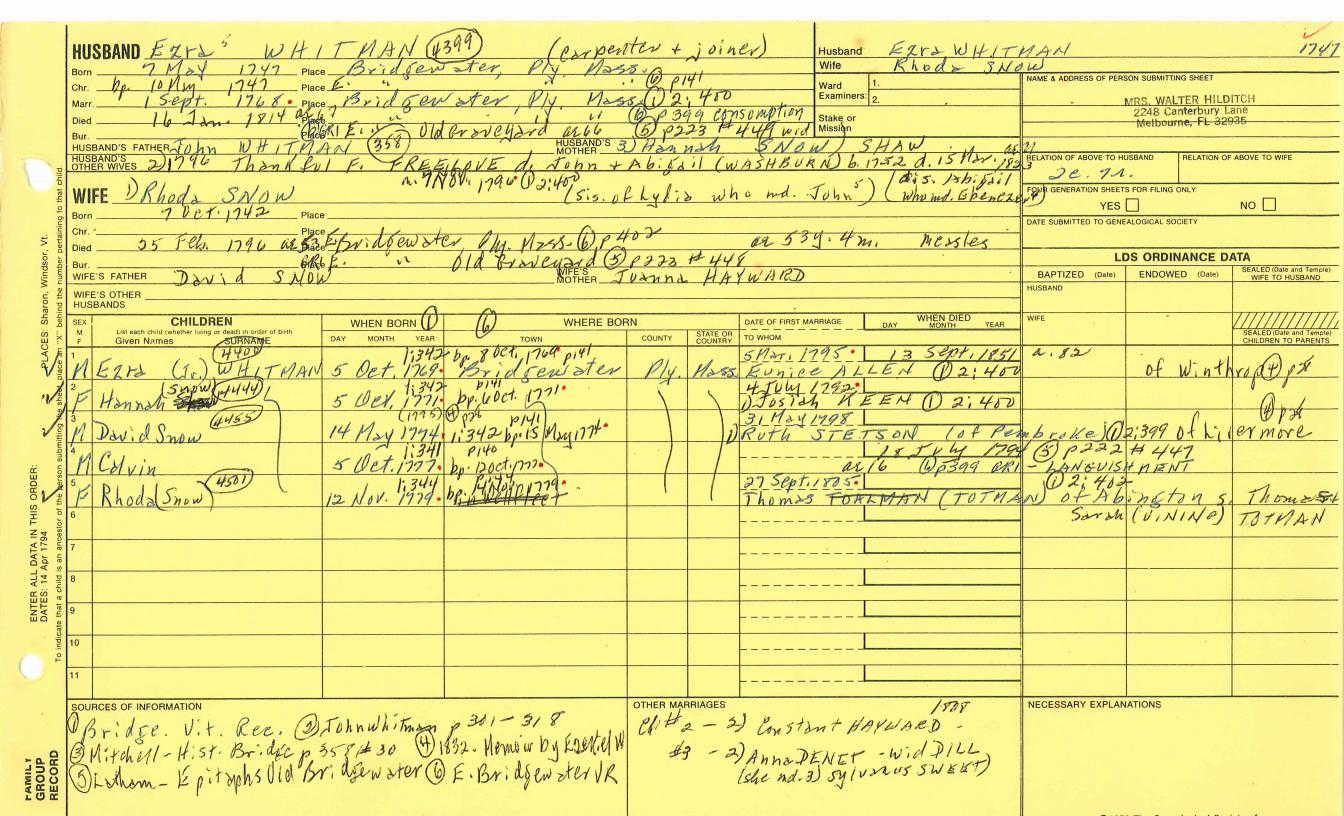 HUSBAND Ezra 5 WHITMAN 4399 (carpenter + joiner)
Born 7 May 1747 Place Bridgewater, Ply. Mass.
Chr. bp. 10 May 1747 Place E. " " ⑥ p141
Marr. 1 Sept. 1768 Place Bridgewater, Ply. Mass ① 2:400
Died 16 Jan. 1814 Place ⑥ p399 consumption
Bur. GRI E. " Old Graveyard ae 66 ⑤ p223 # 449 wid
HUSBAND'S FATHER John WHITMAN 358 HUSBAND'S MOTHER 3) Hannah SNOW / SHAW
HUSBAND'S OTHER WIVES 2) 1796 Thankful F. FREELOVE d. John + Abigail (WASHBURN) b. 1752 d. 15 Mar. 1823
m. 9 Nov. 1796 ① 2:400
WIFE 1) Rhoda SNOW (sis. of Lydia who md. John 5) (sis. Abigail who md. Ebenezer 4)
Born 7 Oct. 1742 Place
Chr. Place
Died 25 Feb. 1796 ae 53 Place E. Bridgewater, Ply. Mass. ⑥ p402 ae 53y. 4m. Measles
Bur. GRI E. " Old Graveyard ⑤ p223 # 448
WIFE'S FATHER David SNOW WIFE'S MOTHER Joanna HAYWARD
WIFE'S OTHER HUSBANDS
Husband Ezra WHITMAN 1747
Wife Rhoda SNOW
Ward Examiners: 1.
2.
Stake or Mission
NAME & ADDRESS OF PERSON SUBMITTING SHEET
MRS. WALTER HILDITCH
2248 Canterbury Lane
Melbourne, FL 32935
RELATION OF ABOVE TO HUSBAND RELATION OF ABOVE TO WIFE
2c. 7r.
FOUR GENERATION SHEETS FOR FILING ONLY
YES NO
DATE SUBMITTED TO GENEALOGICAL SOCIETY
LDS ORDINANCE DATA
BAPTIZED (Date) ENDOWED (Date) SEALED (Date and Temple) WIFE TO HUSBAND
HUSBAND
WIFE
SEALED (Date and Temple) CHILDREN TO PARENTS
SEX M F CHILDREN WHEN BORN ① ⑥ WHERE BORN DATE OF FIRST MARRIAGE WHEN DIED
List each child (whether living or dead) in order of birth
Given Names SURNAME DAY MONTH YEAR TOWN COUNTY STATE OR COUNTRY TO WHOM DAY MONTH YEAR
4400 1:342 bp. 8 Oct. 1769 p141 5 Mar. 1795 13 Sept. 1851 a. 82
1 M Ezra (Jr.) WHITMAN 5 Oct. 1769 Bridgewater Ply. Mass Eunice ALLEN ① 2:400 of Winthrop ④ p26
2 (Snow) 4444 1:342 p141 4 July 1792
F Hannah 5 Oct. 1771 bp. 6 Oct. 1771 1) Josiah KEEN ① 2:400
3 4455 (1775) ④ p26 p141 31 May 1798 ④ p26
M David Snow 14 May 1774 1:342 bp. 15 May 1774 1) Ruth STETSON (of Pembroke) ① 2:399 of Livermore
4 1:341 p140 18 July 1794 ⑤ p222 # 447
M Calvin 5 Oct. 1777 bp. 12 Oct. 1777 ae 16 ⑥ p399 GRI - LANGUISHMENT
5 4501 1:344 p.144 14 Nov. 1779 27 Sept. 1805 ① 2:402
F Rhoda (Snow) 12 Nov. 1779 bp. Thomas TOALMAN (TOTMAN) of Abington s. Thomas +
6 Sarah (VINING) TOTMAN
7
8
9
10
11
SOURCES OF INFORMATION
① Bridge. Vit. Rec. ② John Whitman p 301-318
③ Mitchell - Hist. Bridge p 358 # 30 ④ 1832 - Memoir by Ezekiel W
⑤ Latham - Epitaphs Old Bridgewater ⑥ E. Bridgewater VR
OTHER MARRIAGES 1808
Ch # 2 - 2) Constant HAYWARD -
#3 - 2) Anna DENET - wid DILL
(she md. 3) Sylvanus SWEET)
NECESSARY EXPLANATIONS
FAMILY GROUP RECORD
ENTER ALL DATA IN THIS ORDER:
DATES: 14 Apr 1794
PLACES: Sharon, Windsor, Vt.
To indicate that a child is an ancestor of the person submitting the sheet, place an "X" behind the number pertaining to that child